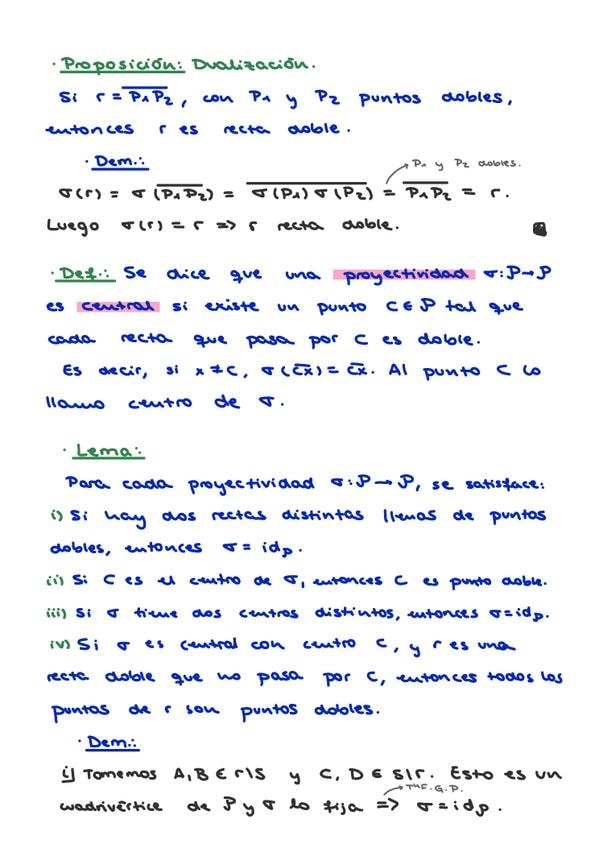 · Proposición: Dualización.
Si r = \overline{P₁P₂}, con P₁ y P₂ puntos dobles,
entonces r es recta doble.
· Dem.:
P₁ y P₂ dobles.
σ(r) = σ(\overline{P₁P₂}) = \overline{σ(P₁)σ(P₂)} = \overline{P₁P₂} = r.
Luego σ(r) = r => r recta doble.
· Def.: Se dice que una proyectividad σ: P → P
es central si existe un punto C ∈ P tal que
cada recta que pasa por C es doble.
Es decir, si x ≠ C, σ(\overline{Cx}) = \overline{Cx}. Al punto C lo
llamo centro de σ.
· Lema:
Para cada proyectividad σ: P → P, se satisface:
i) Si hay dos rectas distintas llenas de puntos
dobles, entonces σ = id_P.
ii) Si C es el centro de σ, entonces C es punto doble.
iii) Si σ tiene dos centros distintos, entonces σ = id_P.
iv) Si σ es central con centro C, y r es una
recta doble que no pasa por C, entonces todos los
puntos de r son puntos dobles.
· Dem.:
i) Tomemos A, B ∈ r\S y C, D ∈ S\r. Esto es un
Tᵐᵃ F.G.P.
cuadrivértice de P y σ lo fija => σ = id_P.